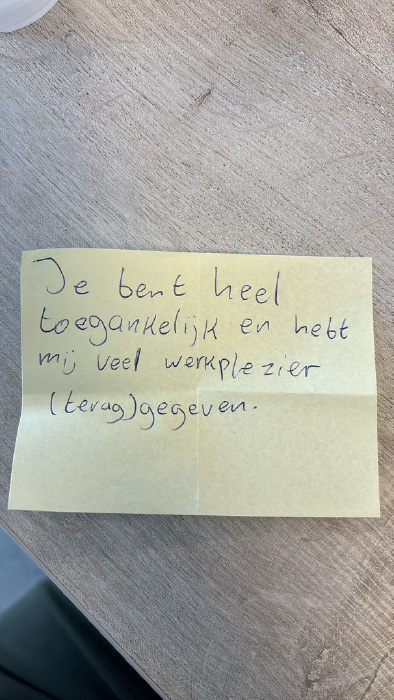 Je bent heel
toegankelijk en hebt
mij veel werkplezier
(terug)gegeven.